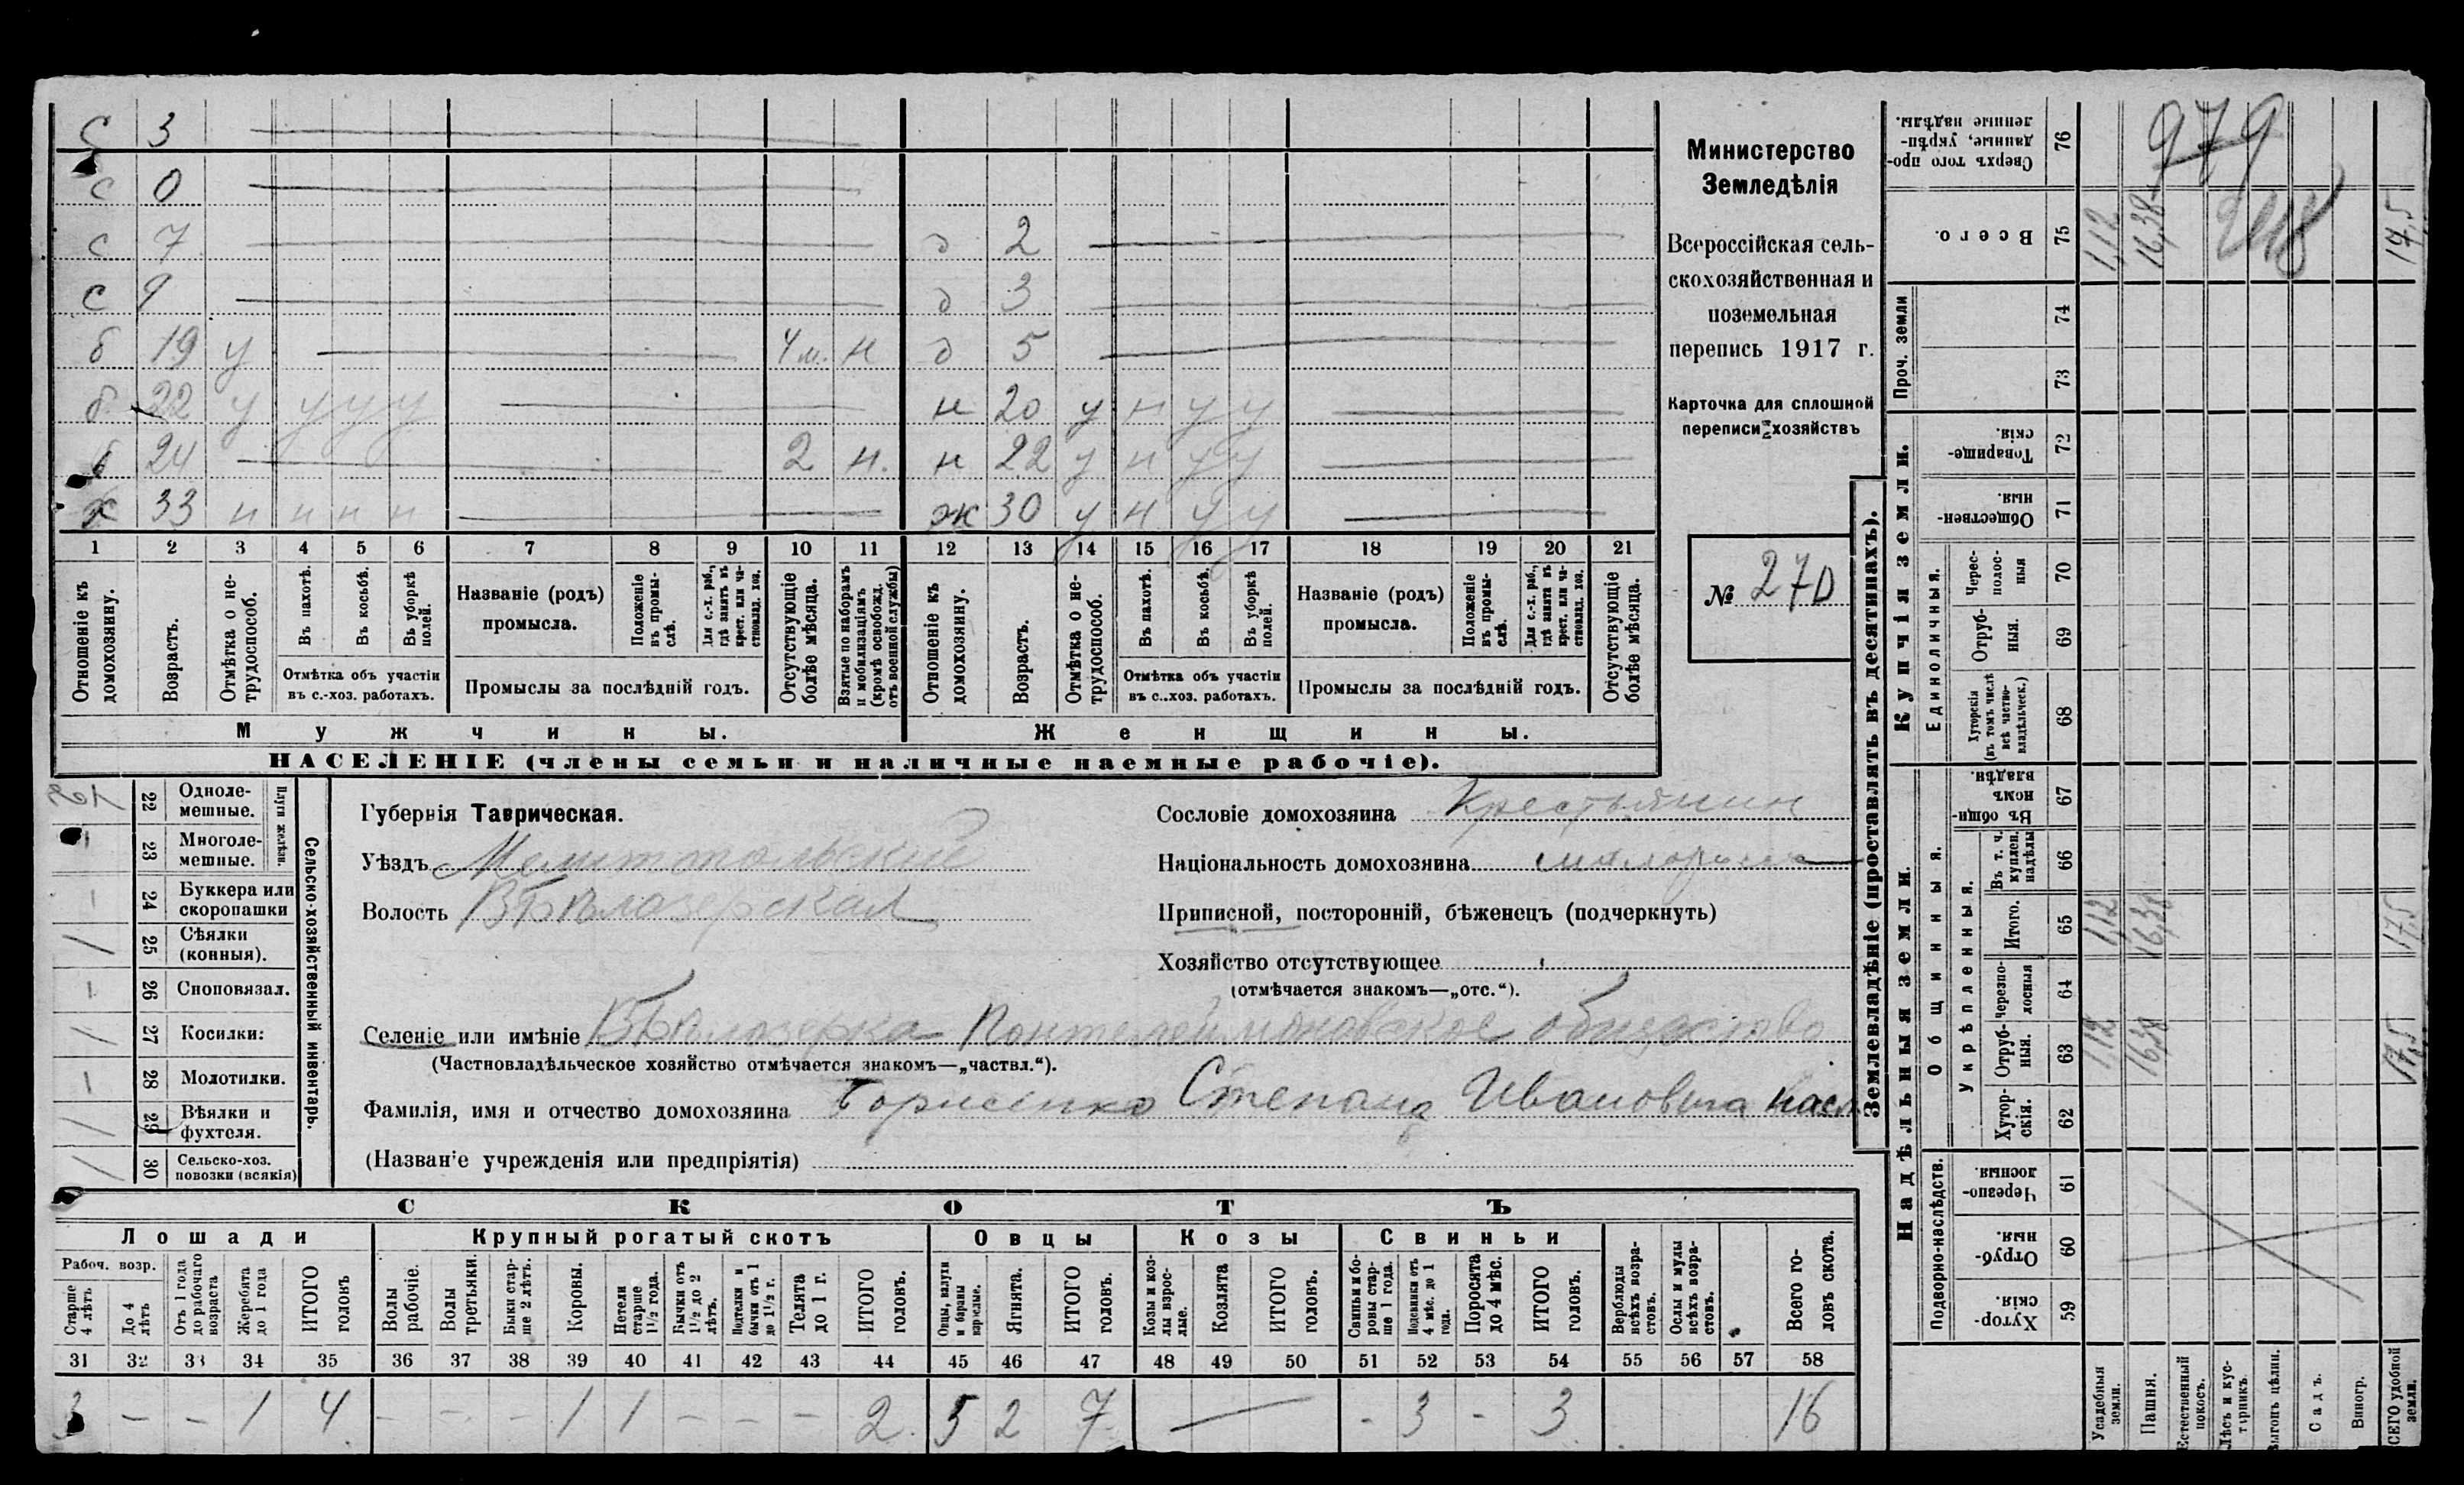 с 3
с 0
с 7 д 2
с 9 д 3
б 19 у 4 м. н д 5
б 22 у у у у н 20 у н у у
б 24 2 н. н 22 у н у у
х 33 н н н н ж 30 у н у у
1 2 3 4 5 6 7 8 9 10 11 12 13 14 15 16 17 18 19 20 21
Отношеніе къ домохозяину.
Возрастъ.
Отмѣтка о не-трудоспособ.
Въ пахотѣ.
Въ косьбѣ.
Въ уборкѣ полей.
Отмѣтка объ участіи въ с.-хоз. работахъ.
Названіе (родъ) промысла.
Положеніе въ промы-слѣ.
Для с.-х. раб., гдѣ занятъ въ крест. или ча-стновлад. хоз.
Промыслы за послѣдній годъ.
Отсутствующіе болѣе мѣсяца.
Взятые по наборамъ и мобилизаціямъ (кромѣ освобожд. отъ военной службы)
Отношеніе къ домохозяину.
Возрастъ.
Отмѣтка о не-трудоспособ.
Въ пахотѣ.
Въ косьбѣ.
Въ уборкѣ полей.
Отмѣтка объ участіи въ с.-хоз. работахъ.
Названіе (родъ) промысла.
Положеніе въ промы-слѣ.
Для с.-х. раб., гдѣ занята въ крест. или ча-стновлад. хоз.
Промыслы за послѣдній годъ.
Отсутствующіе болѣе мѣсяца.
Мужчины. Женщины.
НАСЕЛЕНІЕ (члены семьи и наличные наемные рабочіе).
Министерство
Земледѣлія
Всероссійская сель-
скохозяйственная и
поземельная
перепись 1917 г.
Карточка для сплошной
переписи хозяйствъ
№ 270
22 Одноле-мешные.
23 Многоле-мешные.
Плуги желѣзн.
24 Буккера или скоропашки
25 Сѣялки (конныя).
26 Сноповязал.
27 Косилки:
28 Молотилки.
29 Вѣялки и фухтеля.
30 Сельско-хоз. повозки (всякія)
Сельско-хозяйственный инвентарь.
Губернія Таврическая.
Уѣздъ Мелитопольский
Волость Бѣлозерская
Сословіе домохозяина Крестьянин
Національность домохозяина малорусс
Приписной, посторонній, бѣженецъ (подчеркнуть)
Хозяйство отсутствующее
(отмѣчается знакомъ—„отс.“).
Селеніе или имѣніе Бѣлозерка Понтелеймоновское общество
(Частновладѣльческое хозяйство отмѣчается знакомъ—„частвл.“).
Фамилія, имя и отчество домохозяина Борисенко Степана Ивановича насл
(Названіе учрежденія или предпріятія)
СКОТЪ
Лошади Крупный рогатый скотъ Овцы Козы Свиньи
Рабоч. возр.
Старше 4 лѣтъ
До 4 лѣтъ
Отъ 1 года до рабочаго возраста
Жеребята до 1 года
ИТОГО головъ
Волы рабочіе.
Волы третьяки.
Быки стар-ше 2 лѣтъ.
Коровы.
Нетели старше 1½ года.
Бычки отъ 1½ до 2 лѣтъ.
Подтелки и бычки отъ 1 до 1½ г.
Телята до 1 г.
ИТОГО головъ.
Овцы, валухи и бараны взрослые.
Ягнята.
ИТОГО головъ.
Козы и коз-лы взрос-лые.
Козлята
ИТОГО головъ.
Свиньи и бо-ровы стар-ше 1 года.
Подсвинки отъ 4 мѣс. до 1 года.
Поросята до 4 мѣс.
ИТОГО головъ.
Верблюды всѣхъ возра-стовъ.
Ослы и мулы всѣхъ возра-стовъ.
Всего го-ловъ скота.
31 32 33 34 35 36 37 38 39 40 41 42 43 44 45 46 47 48 49 50 51 52 53 54 55 56 57 58
3 — — 1 4 — — — 1 1 — — — 2. 5 2 7 — - 3 - 3 16
Землевладѣніе (проставлять въ десятинахъ).
979
Сверхъ того про-данные, укрѣп-ленные надѣлы. 76
Всего. 75 1,12 16,38 17,5
Проч. земли 74 73
Купчія земли.
Товарище-скія. 72
Обществен-ныя. 71
Единоличныя.
Черес-полос-ныя 70
Отруб-ныя. 69
Хуторскія (въ томъ числѣ всѣ частно-владѣльческ.) 68
Надѣльныя земли.
Общинныя.
Въ общин-номъ владѣн. 67
Укрѣпленныя.
Въ т. ч. куплен. надѣлы 66
Итого. 65 1,12 16,38 17,5
Черезпо-лосныя 64
Отруб-ныя. 63 1,12 16,38 17,5
Хутор-скія. 62
Подворно-наслѣдств.
Черезпо-лосныя. 61
Отруб-ныя. 60
Хутор-скія. 59
Усадебныя земли.
Пашня.
Естественный покосъ.
Лѣсъ и кус-тарникъ.
Выгонъ цѣлин.
Садъ.
Виногр.
ВСЕГО удобной земли.